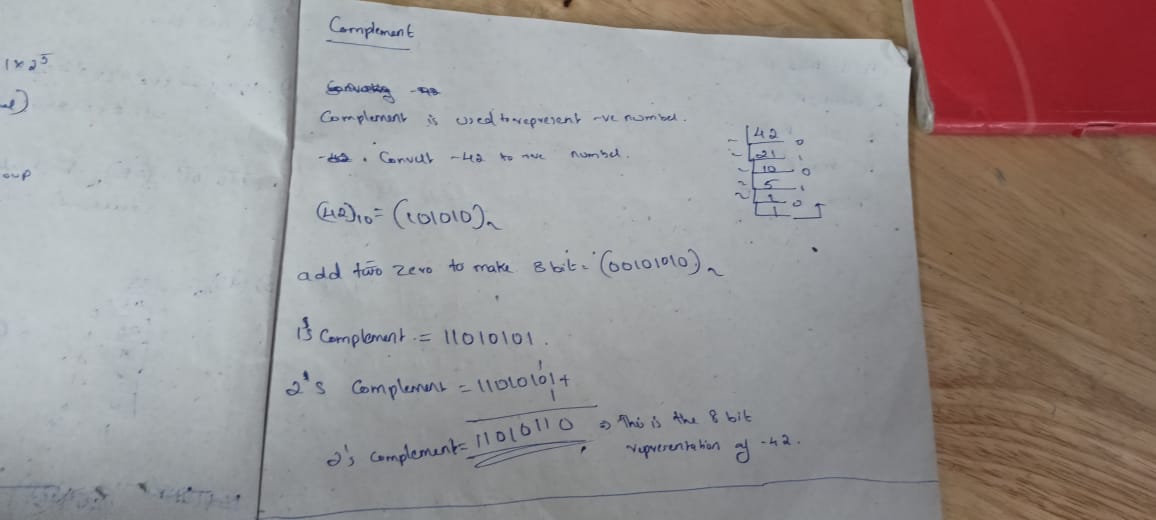 1×2⁵
oup
Complement
Complement is used to represent -ve number.
. Convert -42 to +ve number.
42 0
21 1
10 0
5 1
2 0
1
(42)10 = (101010)2
add two zero to make 8 bit = (00101010)2
1's Complement = 11010101.
2's Complement = 11010101+
1
2's complement = 11010110 ⇒ This is the 8 bit
representation of -42.